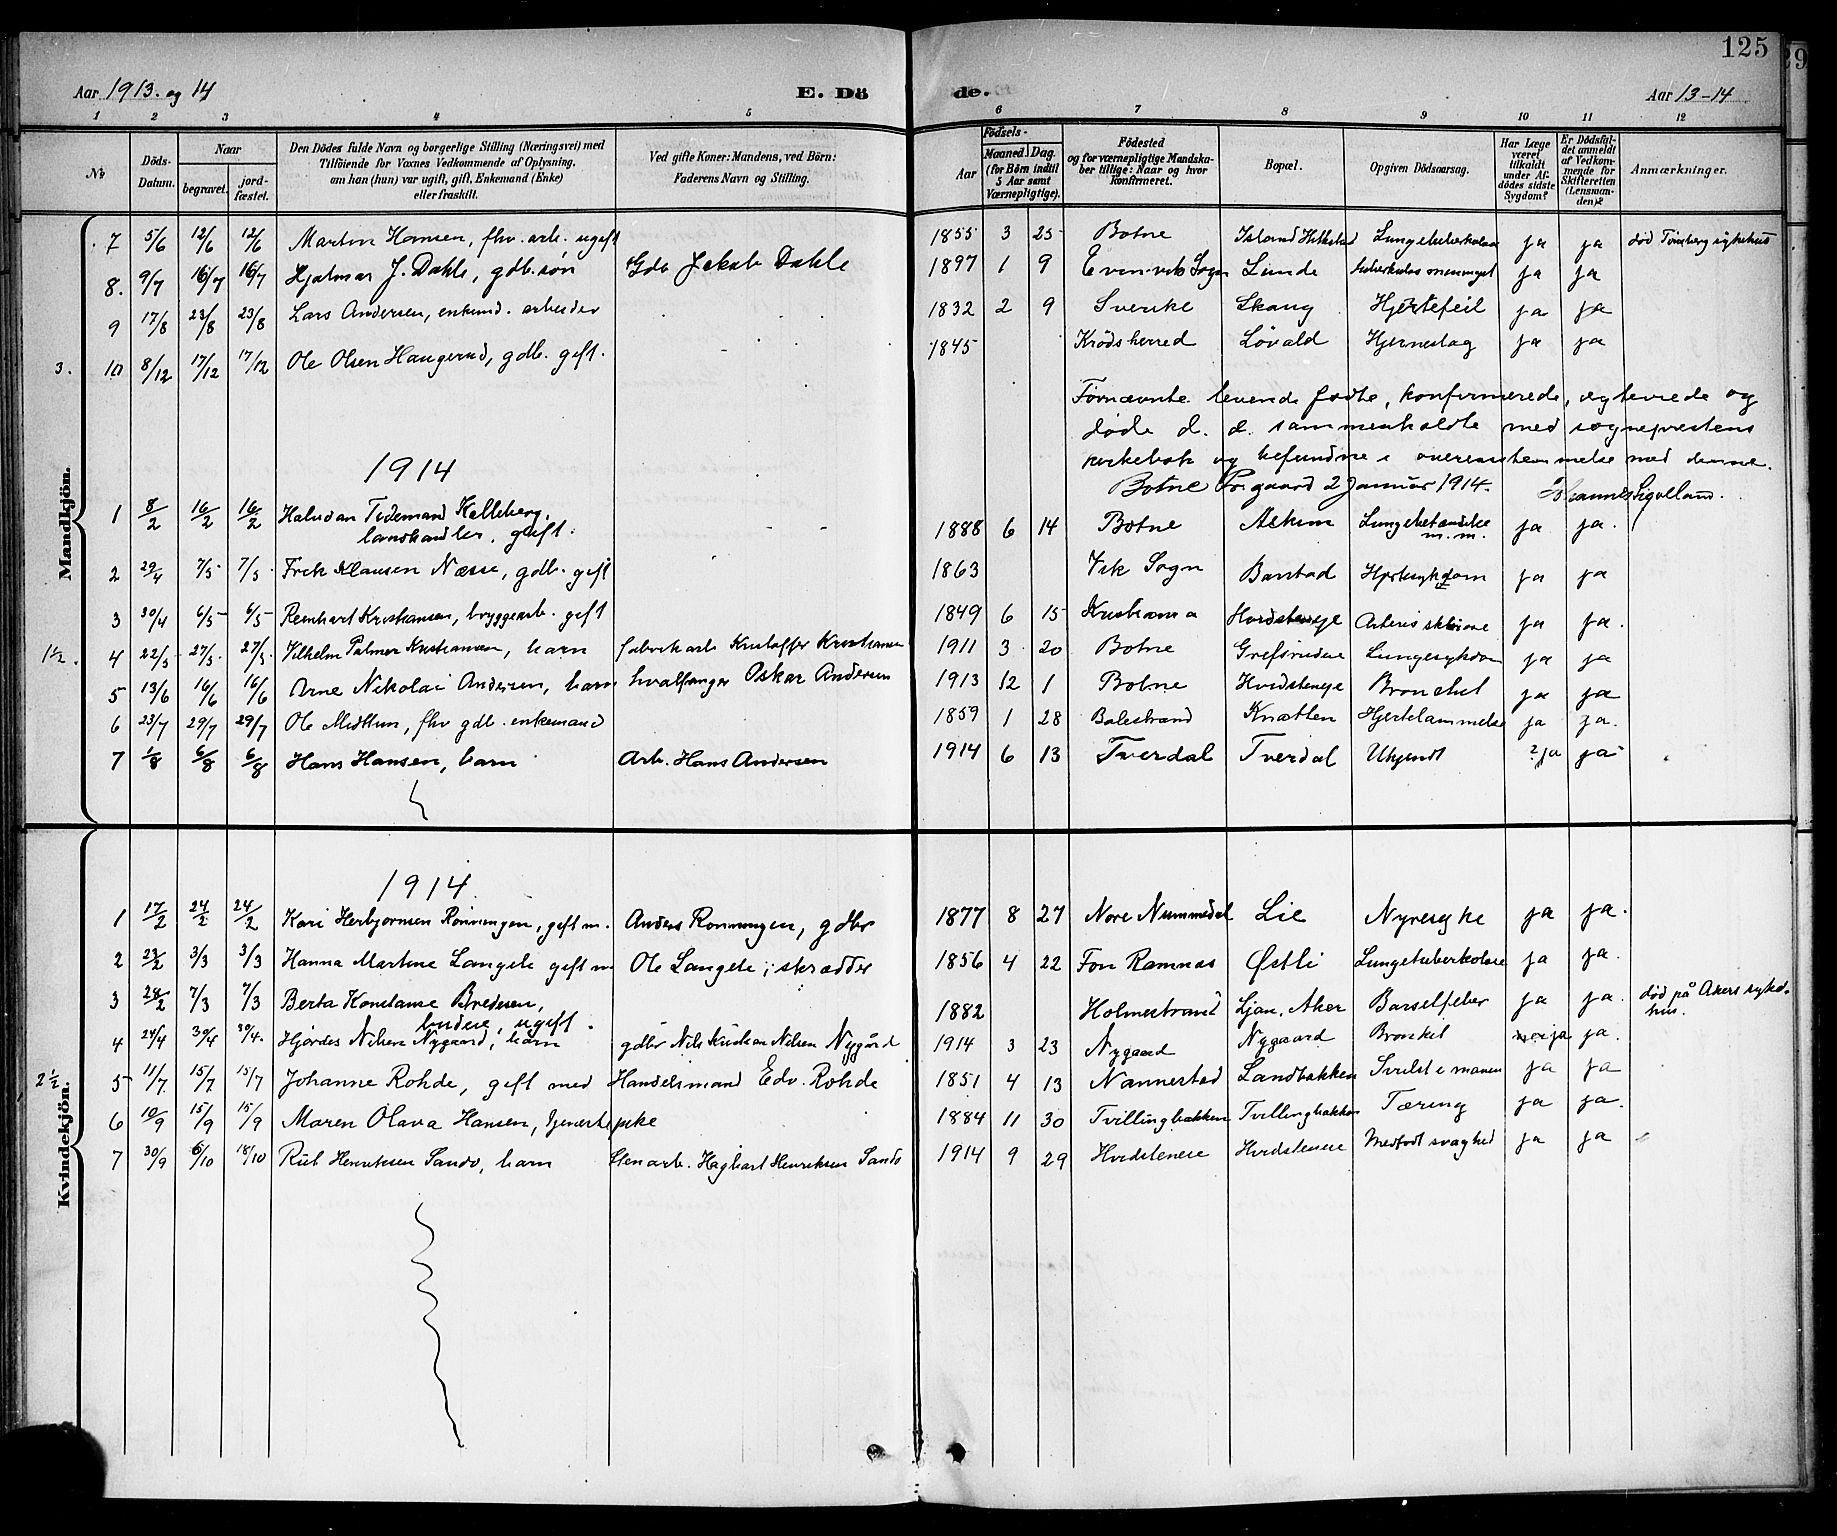 125
Aar 1913. og 14
E. Dö
de.
Aar 13-14
1 2 3 4 5
6 7 8 9 10 11 12
No
Döds-Datum.
Naar
begravet.
jord-fæstet.
Den Dödes fulde Navn og borgerlige Stilling (Næringsvei) med
Tilföiende for Voxnes Vedkommende af Oplysning,
om han (hun) var ugift, gift, Enkemand (Enke)
eller fraskilt.
Ved gifte Koner: Mandens, ved Börn:
Faderens Navn og Stilling.
Födsels-
Aar
Maaned. Dag.
(for Börn indtil
5 Aar samt
Værnepligtige).
Födested
og for værnepligtige Mandska-
ber tillige: Naar og hvor
konfirmeret.
Bopæl.
Opgiven Dödsaarsag.
Har Læge
været
tilkaldt
under Af-
dödes sidste
Sygdom?
Er Dödsfal-
det anmeldt
af Vedkom-
mende for
Skifteretten
(Lensman-
den)?
Anmærkninger.
Mandkjön.
7 5/6 12/6 12/6 Martin Hansen, fhv. arb. ugift 1855 3 25 Botne Island Hilkstad Lungetuberkolose ja ja død Tønsberg sykehus
8. 9/7 16/7 16/7 Hjalmar J. Dahle, gdb. søn Gdb Jakob Dahle 1897 1 9 Evenvik Sogn Lunde tuberkuløs meningit ja ja
9 17/8 23/8 23/8 Lars Andersen, enkemd. arbeider 1832 2 9 Sverike Skaug Hjertefeil ja ja
3. 10 8/12 17/12 17/12 Ole Olsen Haugerud, gdb. gift. 1845 Krödsherred Løvald Hjerneslag ja ja
Førnævnte levende fødte, konfirmerede, egteviede og
døde d. d. sammenholdte med sogneprestens
kirkebok og befundne i overensstemmelse med denne.
Botne Prgaard 2 Januar 1914. Johannes
1914
1 8/2 16/2 16/2 Halvdan Tidemand Kalleberg,
landhandler, gift. 1888 6 14 Botne Askim Lungebetændelse
m. m. ja ja.
2 29/4 7/5 7/5 Frik Klausen Næsse, gdb. gift 1863 Vik Sogn Banstad Hjertesykdom ja ja
3 30/4 6/5 6/5 Reinhart Kristiansen, bryggearb. gift 1849 6 15 Kristiania Hvidsteneje ja ja.
1 1/2. 4 22/5 27/5. 27/5. Vilhelm Palmer Kristiansen, barn fabrikarb Kristoffer Kristiansen 1911 3 20 Botne Grefsrudeie Lungesykdom ja ja
5 13/6 16/6 16/6 Arne Nikolai Andersen, barn hvalfanger Oskar Andersen 1913 12 1 Botne Hvidsteneje Bronchit ja ja
6 23/7 29/7 29/7 Ole Midttun, fhv gdb. enkemand 1859 1 28 Balestrand Knatten Hjertelammelse ja ja.
7 1/8 6/8 6/8 Hans Hansen, barn Arb. Hans Andersen 1914 6 13 Tverdal Tverdal Ukjendt ? ja ja
Kvindekjön.
1914
1 17/2 24/2 24/2 Kari Herbjørnsen Rönningen, gift m. Anders Rönningen, gdbr 1877 8 27 Nore Nummedal Lie Nyresyke ja ja.
2 23/2 3/3 3/3 Hanna Martine Langele gift m Ole Langele, skrædder 1856 4 22 Fon Ramnæs Østli Lungetuberkolose ja ja.
3 28/2 7/3 7/3 Berta Konstanse Bredesen,
budeie, ugift. 1882 Holmestrand Ljan, Aker Barselfeber ja ja. død på Akers syke-
hus.
4 24/4 30/4 30/4. Hjørdes Nilsen Nygaard, barn gdbr Nils Kristian Nilsen Nygård 1914 3 23 Nygaard Nygaard Bronkit nei ja ja.
2 1/2 5 11/7 15/7 15/7 Johanne Rohde, gift med Handelsmand Edv. Rohde 1851 4 13 Nannestad Landbakken Svulst i maven ja ja
6 10/9 15/9 15/9 Maren Olava Hansen, tjenestepike 1884 11 30 Tvillingbakken Tvillingbakken Tæring ja ja.
7 30/9 6/10 18/10 Rut Henriksen Sando, barn Stenarb. Hagbart Henriksen Sando 1914 9 29 Hvidsteneie Hvidsteneie Medfødt svaghed ja ja